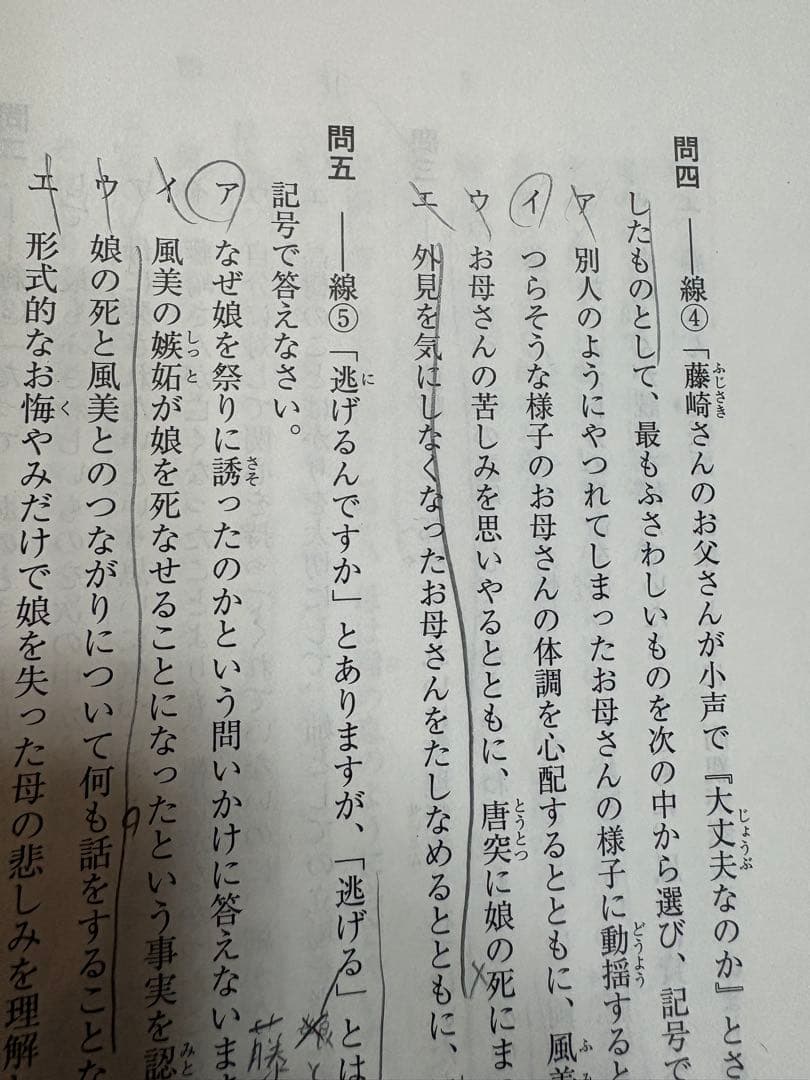 問四 ――線④「藤崎さんのお父さんが小声で『大丈夫なのか』とさ
したものとして、最もふさわしいものを次の中から選び、記号で
ア 別人のようにやつれてしまったお母さんの様子に動揺すると
イ つらそうな様子のお母さんの体調を心配するとともに、風美
ウ お母さんの苦しみを思いやるとともに、唐突に娘の死にまつ
エ 外見を気にしなくなったお母さんをたしなめるとともに、
問五 ――線⑤「逃げるんですか」とありますが、「逃げる」とは
記号で答えなさい。
ア なぜ娘を祭りに誘ったのかという問いかけに答えないまま
イ 風美の嫉妬が娘を死なせることになったという事実を認
ウ 娘の死と風美とのつながりについて何も話をすることな
エ 形式的なお悔やみだけで娘を失った母の悲しみを理解し